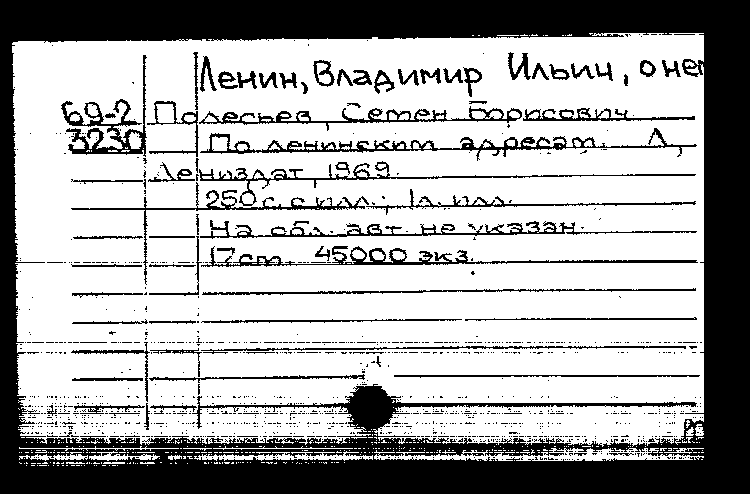 Ленин, Владимир Ильич, о нем
69-2 Полесьев, Семен Борисович
3230 По ленинским адресам. Л.,
Лениздат, 1969.
250 с. с илл.; 1 л. илл.
На обл. авт. не указан.
17 см. 45000 экз.